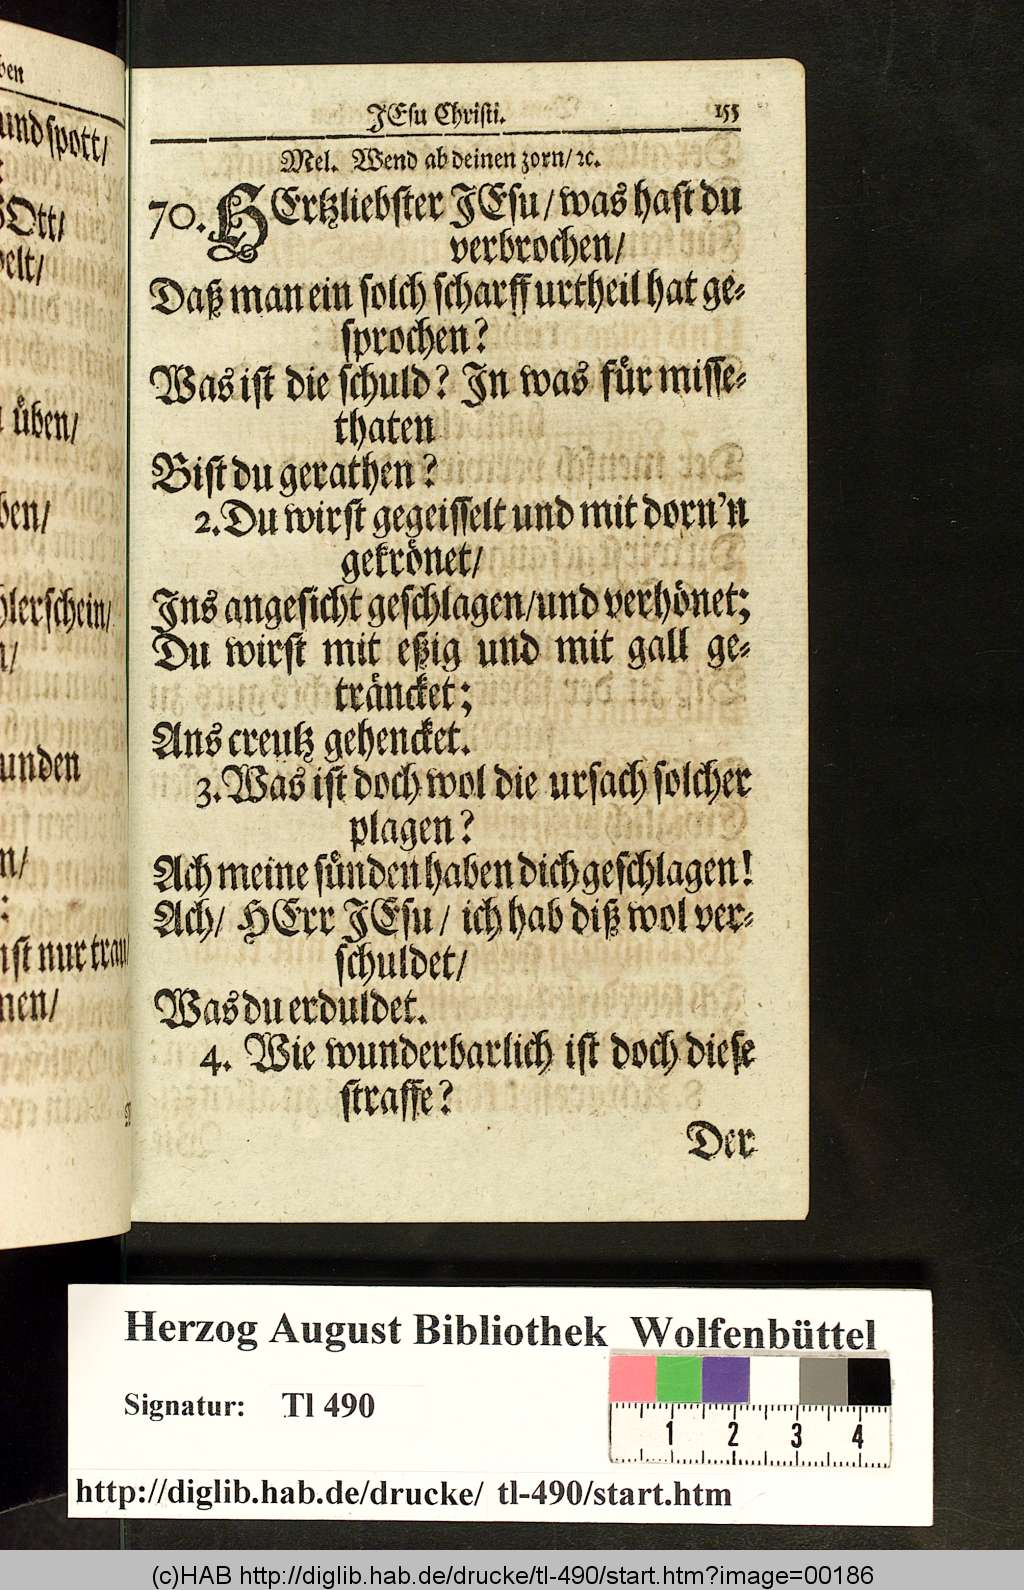 ben
und spott/
GOtt/
welt/
üben/
ben/
hlerschein/
n/
unden
n/
ist nur trau
nen/
JEsu Christi. 155
Mel. Wend ab deinen zorn/ ꝛc.
70. HErtzliebster JEsu/ was hast du
verbrochen/
Daß man ein solch scharff urtheil hat ge⸗
sprochen?
Was ist die schuld? In was für misse⸗
thaten
Bist du gerathen?
2. Du wirst gegeisselt und mit dorn'n
gekrönet/
Ins angesicht geschlagen/ und verhönet;
Du wirst mit eßig und mit gall ge⸗
träncket;
Ans creutz gehencket.
3. Was ist doch wol die ursach solcher
plagen?
Ach meine sünden haben dich geschlagen!
Ach/ HErr JEsu/ ich hab diß wol ver⸗
schuldet/
Was du erduldet.
4. Wie wunderbarlich ist doch diese
straffe?
Der
Herzog August Bibliothek Wolfenbüttel
Signatur: Tl 490
1 2 3 4
http://diglib.hab.de/drucke/ tl-490/start.htm
(c)HAB http://diglib.hab.de/drucke/tl-490/start.htm?image=00186